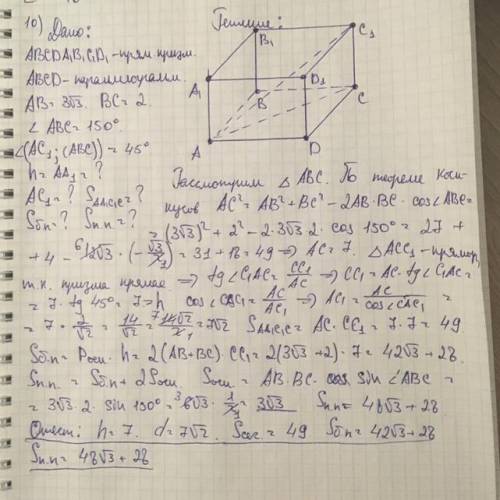 10) Дано:
Решение:
ABCDA₁B₁C₁D₁ - прям. призм.
ABCD - параллелограмм.
AB = 3√3. BC = 2.
∠ABC = 150°.
∠(AC₁; (ABC)) = 45°
h = AA₁ = ?
AC₁ = ? S_AA₁C₁C = ?
Sбп = ? Sп.п = ?
A₁ B₁ C₁ D₁
A B C D
Рассмотрим △ABC. По теореме коси-
нусов AC² = AB² + BC² - 2AB·BC·cos∠ABC =
= (3√3)² + 2² - 2·3√3·2·cos 150° = 27 +
+ 4 - 12√3·(-√3/2) = 31 + 18 = 49 ⇒ AC = 7. △ACC₁ - прямоуг,
т.к. призма прямая ⇒ tg∠C₁AC = CC₁/AC ⇒ CC₁ = AC·tg∠C₁AC =
= 7·tg 45° = 7 = h cos∠CAC₁ = AC/AC₁ ⇒ AC₁ = AC/cos∠CAC₁ =
= 7·2/√2 = 14/√2 = 14√2/2 = 7√2 S_AA₁C₁C = AC·CC₁ = 7·7 = 49
Sбп = Pосн·h = 2(AB+BC)·CC₁ = 2(3√3+2)·7 = 42√3 + 28.
Sп.п. = Sбп + 2Sосн. Sосн = AB·BC·sin∠ABC =
= 3√3·2·sin 150° = 6√3·1/2 = 3√3 Sпп = 48√3 + 28
Ответ: h = 7. d = 7√2. Sсеч = 49 Sбп = 42√3 + 28
Sп.п = 48√3 + 28